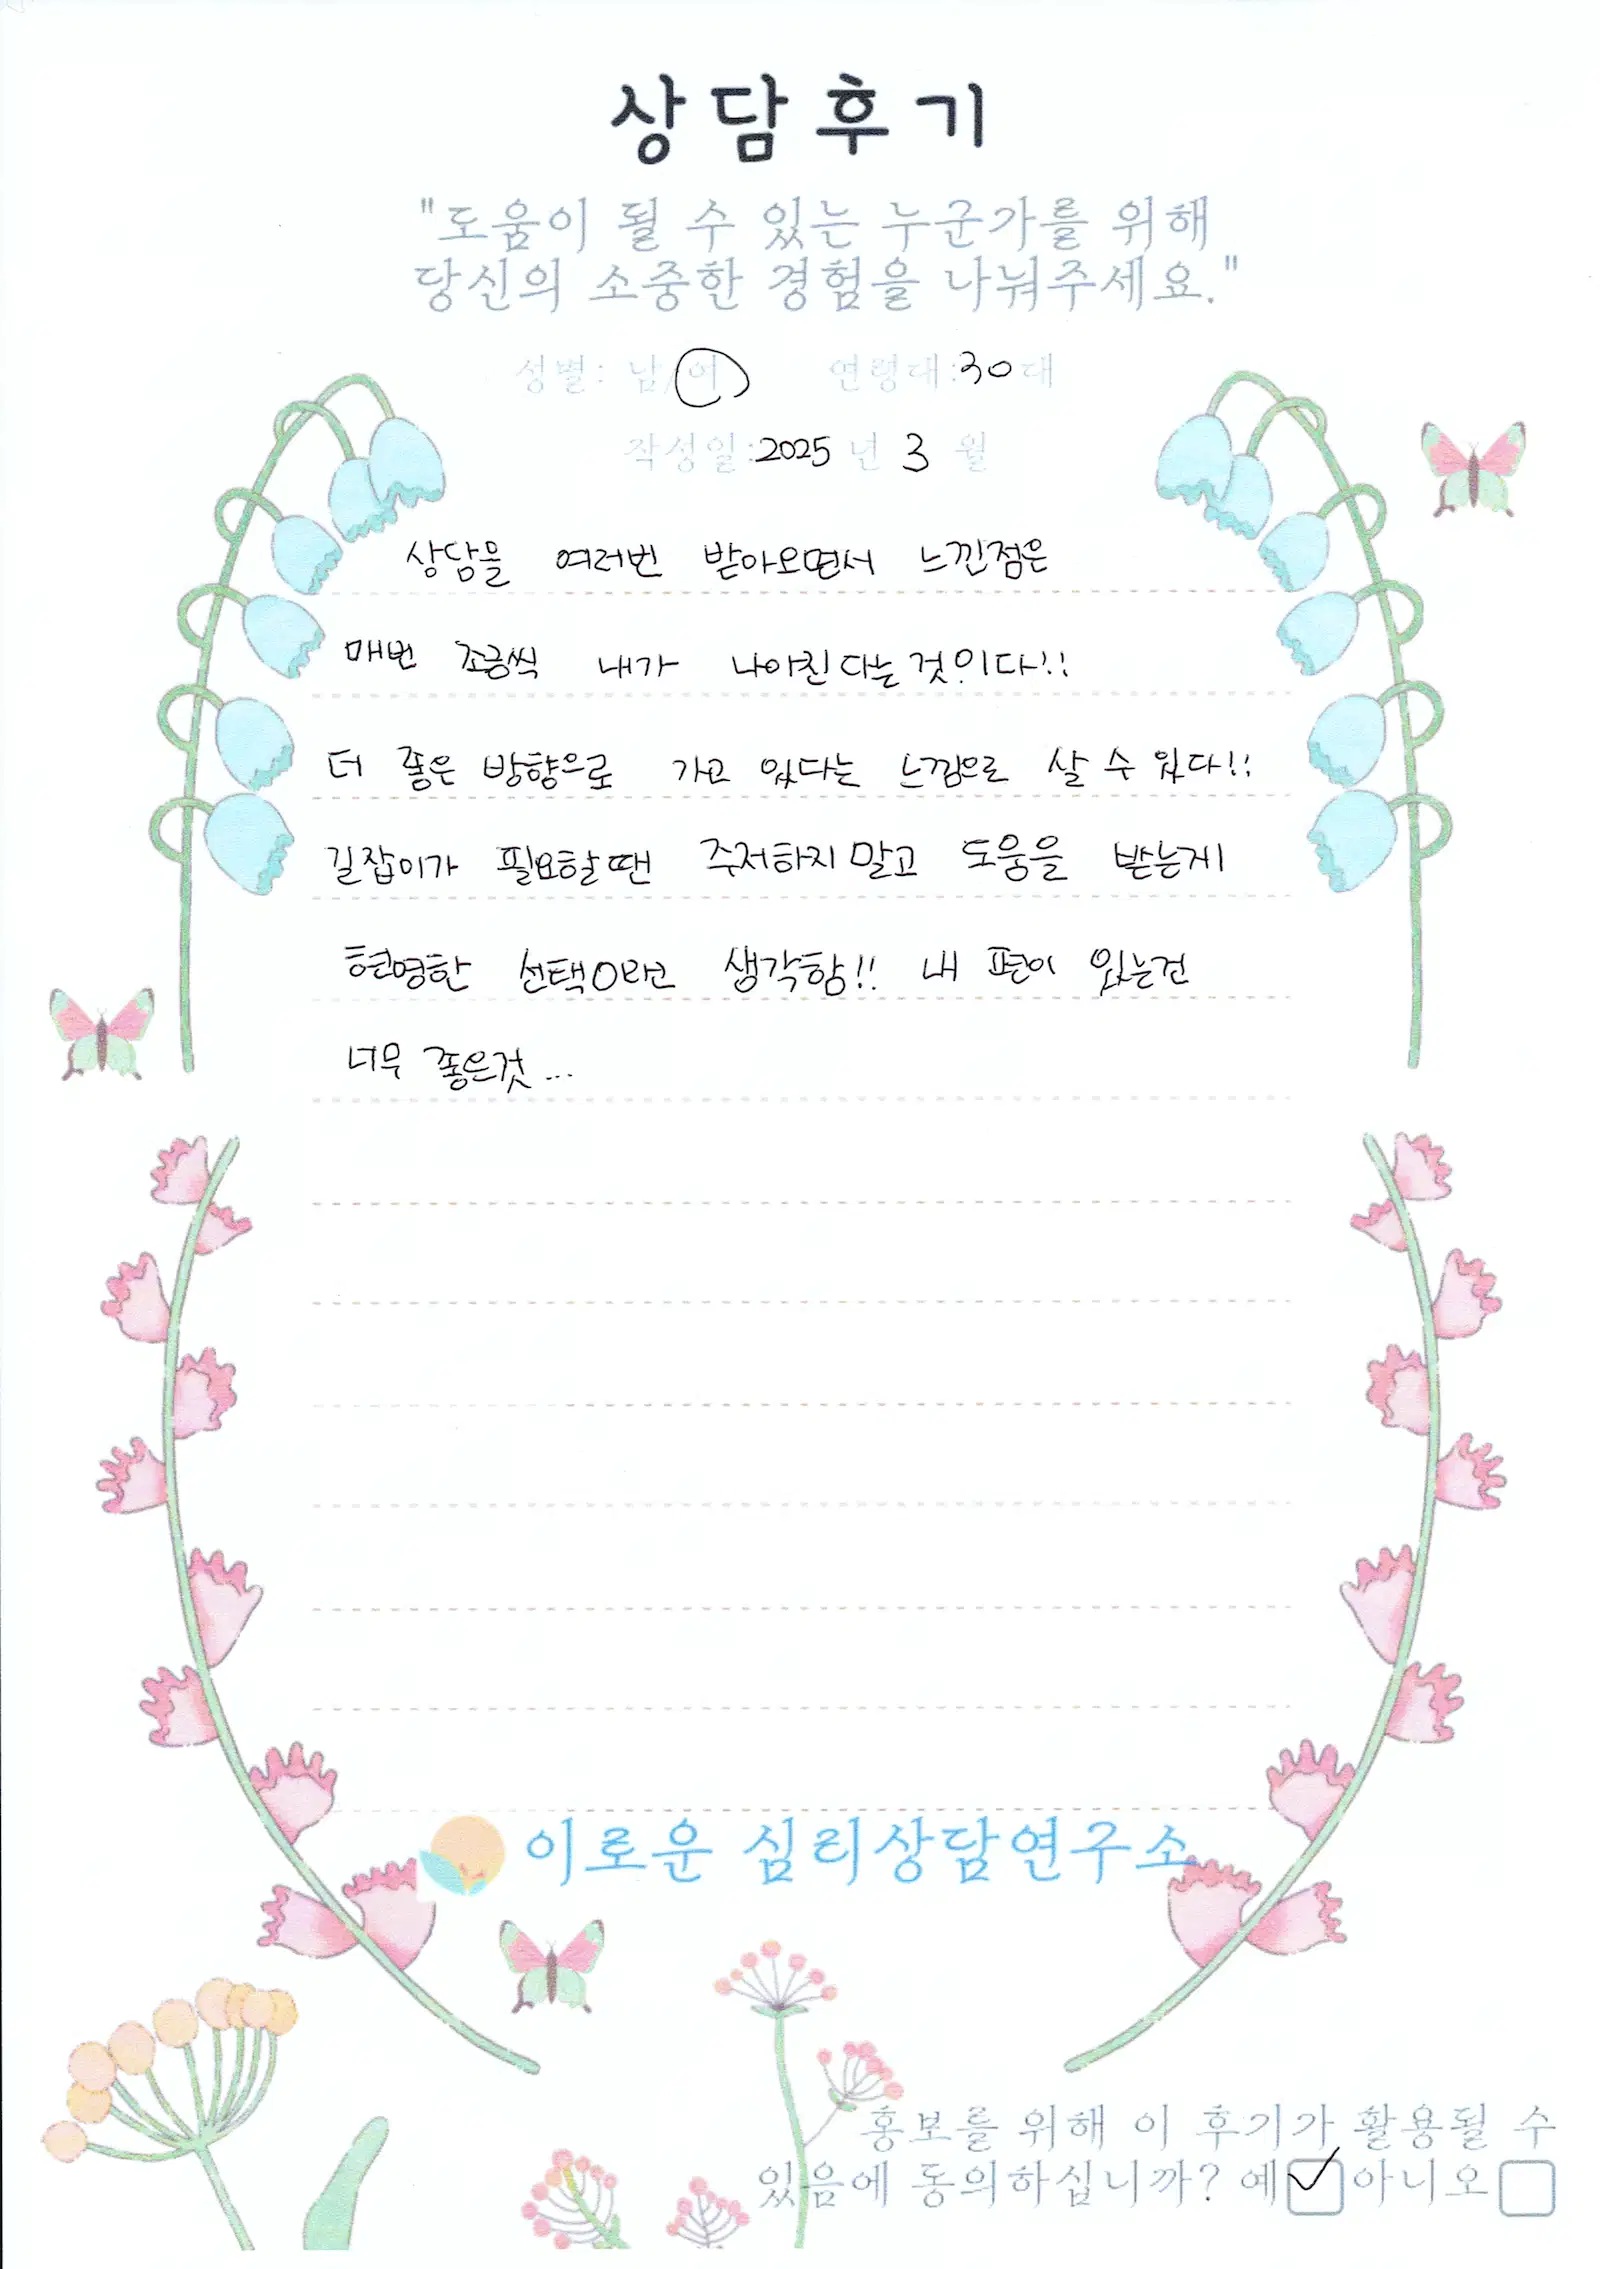 상담후기
"도움이 될 수 있는 누군가를 위해
당신의 소중한 경험을 나눠주세요."
성별: 남/여 연령대:30대
작성일:2025년 3월
상담을 여러번 받아오면서 느낀점은
매번 조금씩 내가 나아진다는것이다!!
더 좋은 방향으로 가고 있다는 느낌으로 살 수 있다!!
길잡이가 필요할땐 주저하지말고 도움을 받는게
현명한 선택이라고 생각함!! 내 편이 있는건
너무 좋은것...
이로운 심리상담연구소
홍보를 위해 이 후기가 활용될 수
있음에 동의하십니까? 예 아니오